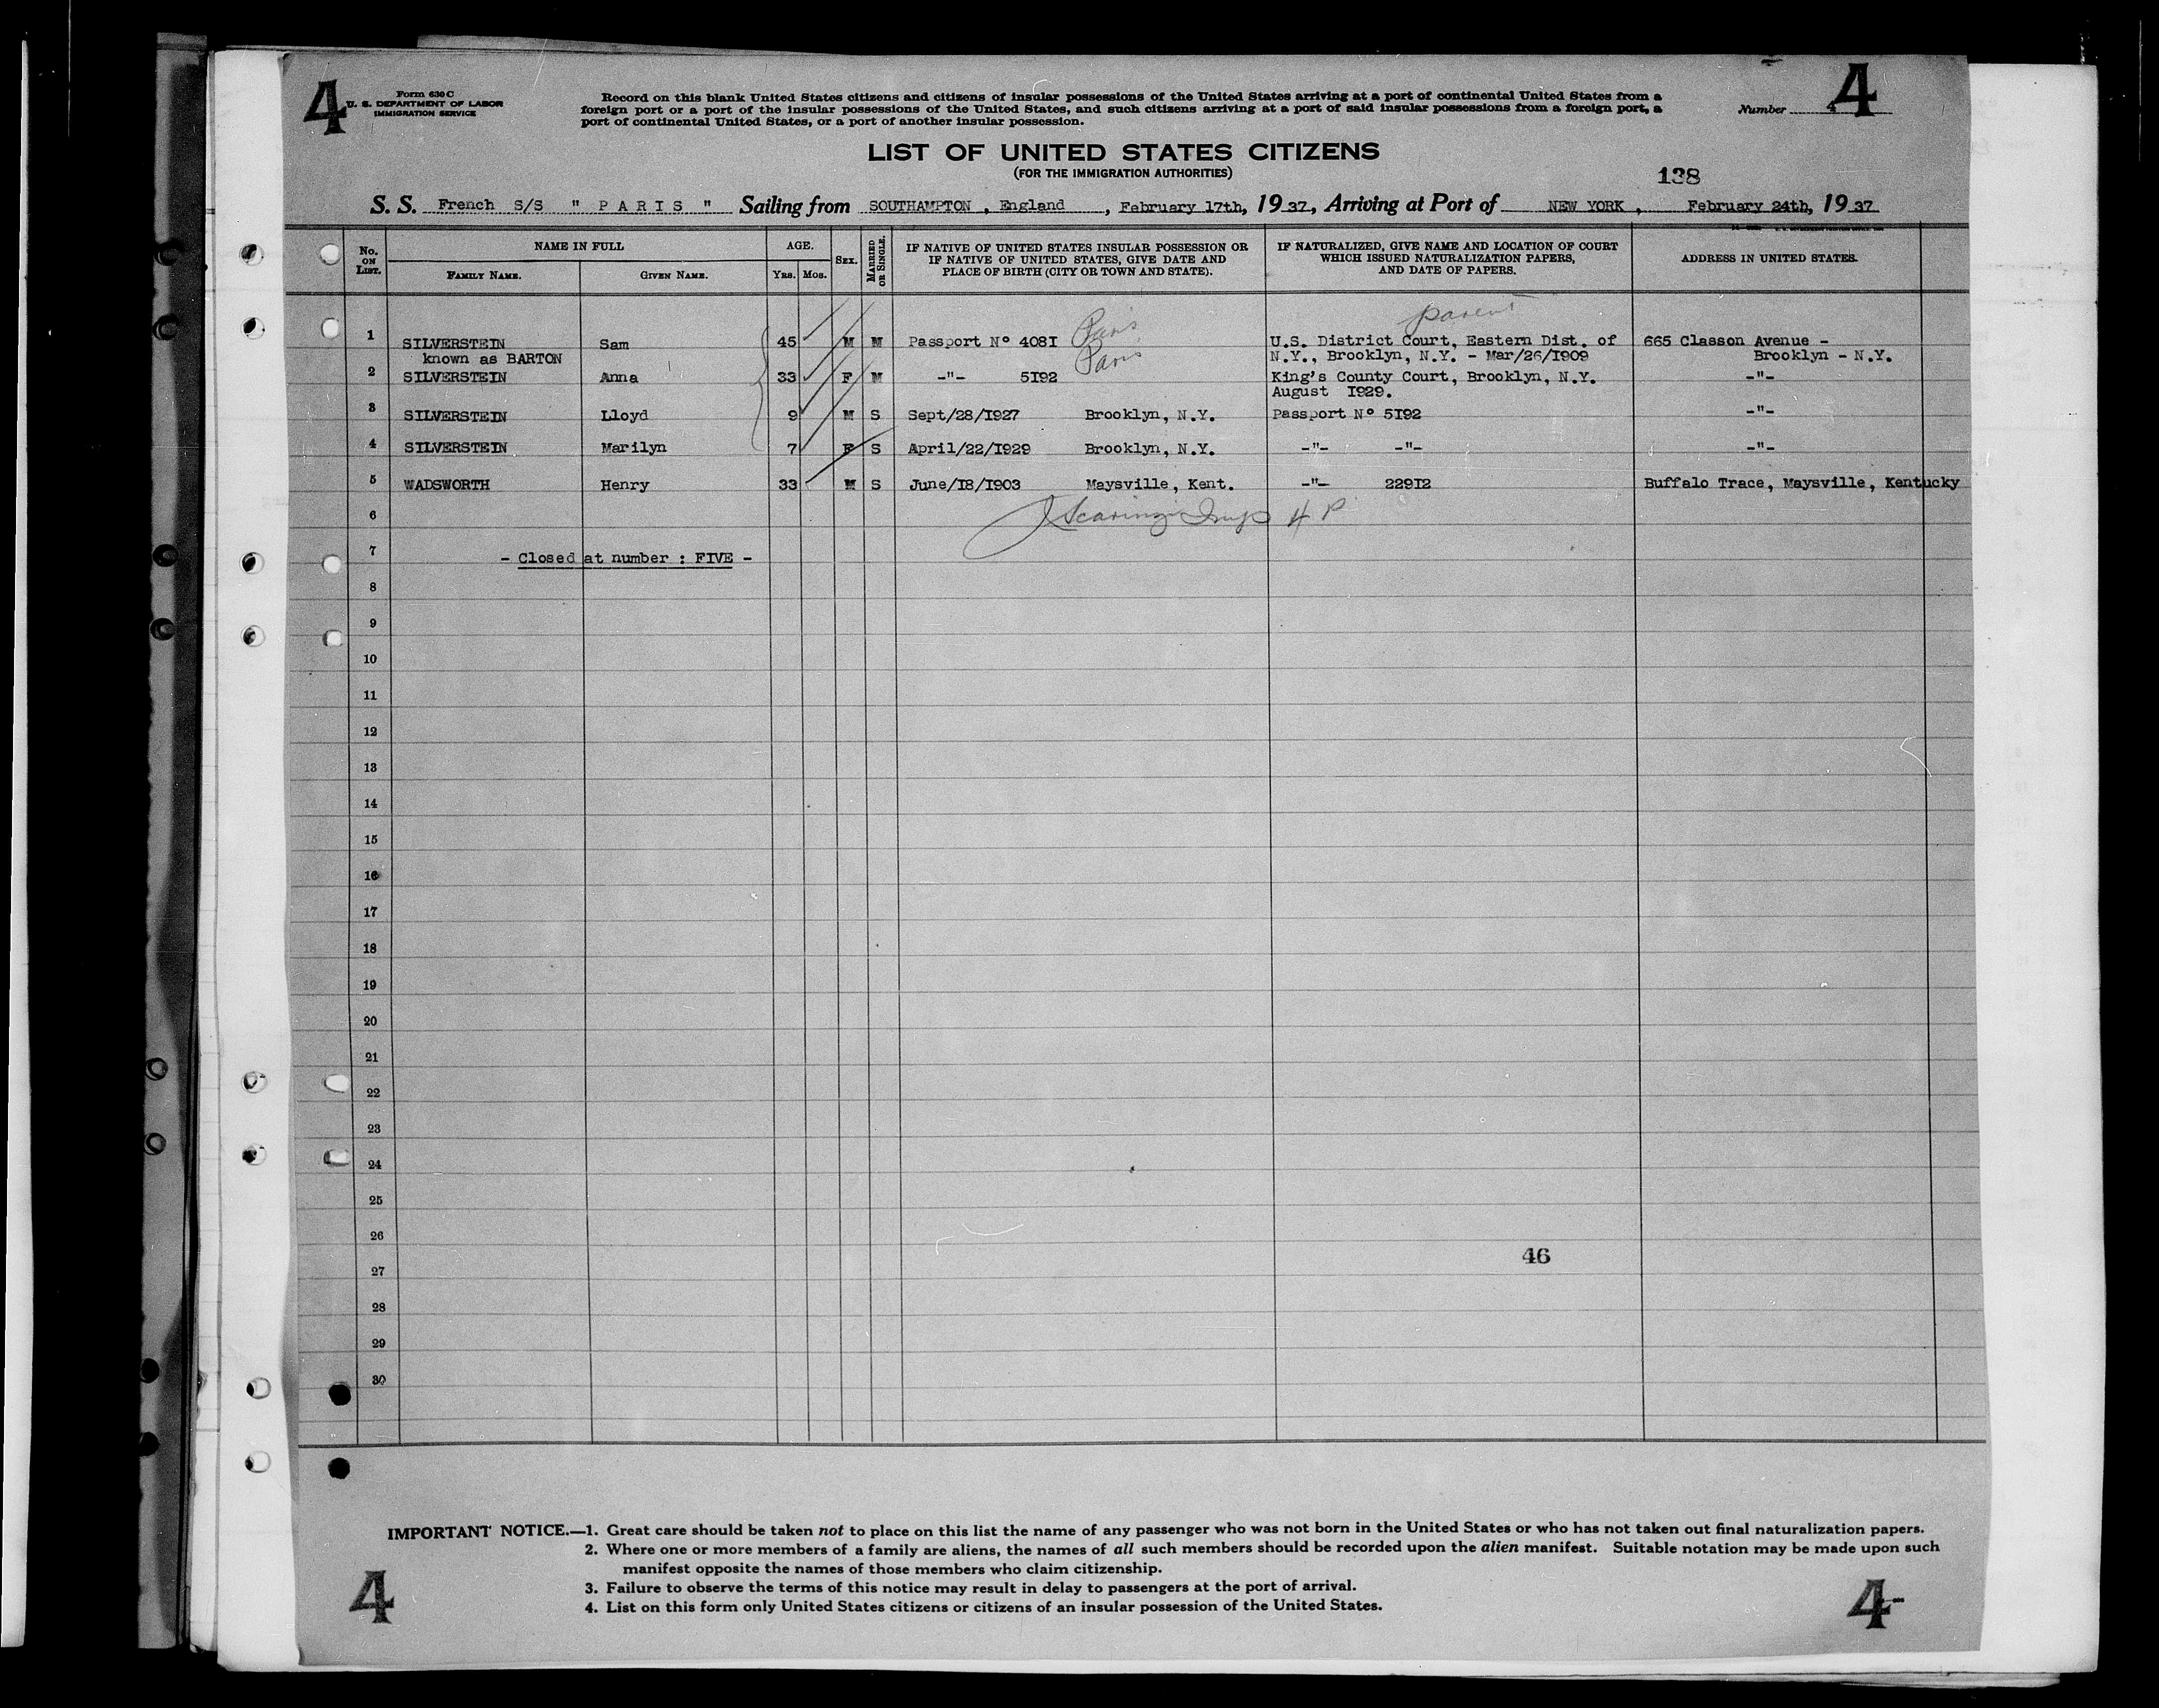 4
Form 630 C
U. S. DEPARTMENT OF LABOR
IMMIGRATION SERVICE
Record on this blank United States citizens and citizens of insular possessions of the United States arriving at a port of continental United States from a
foreign port or a port of the insular possessions of the United States, and such citizens arriving at a port of said insular possessions from a foreign port, a
port of continental United States, or a port of another insular possession.
Number 4
4
LIST OF UNITED STATES CITIZENS
(FOR THE IMMIGRATION AUTHORITIES)
138
S. S. French S/S " P A R I S " Sailing from SOUTHAMPTON, England, February 17th, 1937, Arriving at Port of NEW YORK, February 24th, 1937
No. ON LIST.
NAME IN FULL
FAMILY NAME. GIVEN NAME.
AGE.
YRS. MOS.
SEX.
MARRIED OR SINGLE.
IF NATIVE OF UNITED STATES INSULAR POSSESSION OR
IF NATIVE OF UNITED STATES, GIVE DATE AND
PLACE OF BIRTH (CITY OR TOWN AND STATE).
IF NATURALIZED, GIVE NAME AND LOCATION OF COURT
WHICH ISSUED NATURALIZATION PAPERS,
AND DATE OF PAPERS.
ADDRESS IN UNITED STATES.
parent
1 SILVERSTEIN Sam 45 M M Passport Nº 408I Paris U.S. District Court, Eastern Dist. of 665 Classon Avenue -
known as BARTON Paris N.Y., Brooklyn, N.Y. - Mar/26/I909 Brooklyn - N.Y.
2 SILVERSTEIN Anna 33 F M -"- 5I92 King's County Court, Brooklyn, N.Y. -"-
August I929.
3 SILVERSTEIN Lloyd 9 M S Sept/28/I927 Brooklyn, N.Y. Passport Nº 5I92 -"-
4 SILVERSTEIN Marilyn 7 F S April/22/I929 Brooklyn, N.Y. -"- -"- -"-
5 WADSWORTH Henry 33 M S June/I8/I903 Maysville, Kent. -"- 229I2 Buffalo Trace, Maysville, Kentucky
6
7 - Closed at number : FIVE -
8
9
10
11
12
13
14
15
16
17
18
19
20
21
22
23
24
25
26
46
27
28
29
30
IMPORTANT NOTICE.—1. Great care should be taken not to place on this list the name of any passenger who was not born in the United States or who has not taken out final naturalization papers.
2. Where one or more members of a family are aliens, the names of all such members should be recorded upon the alien manifest. Suitable notation may be made upon such
manifest opposite the names of those members who claim citizenship.
3. Failure to observe the terms of this notice may result in delay to passengers at the port of arrival.
4. List on this form only United States citizens or citizens of an insular possession of the United States.
4
4